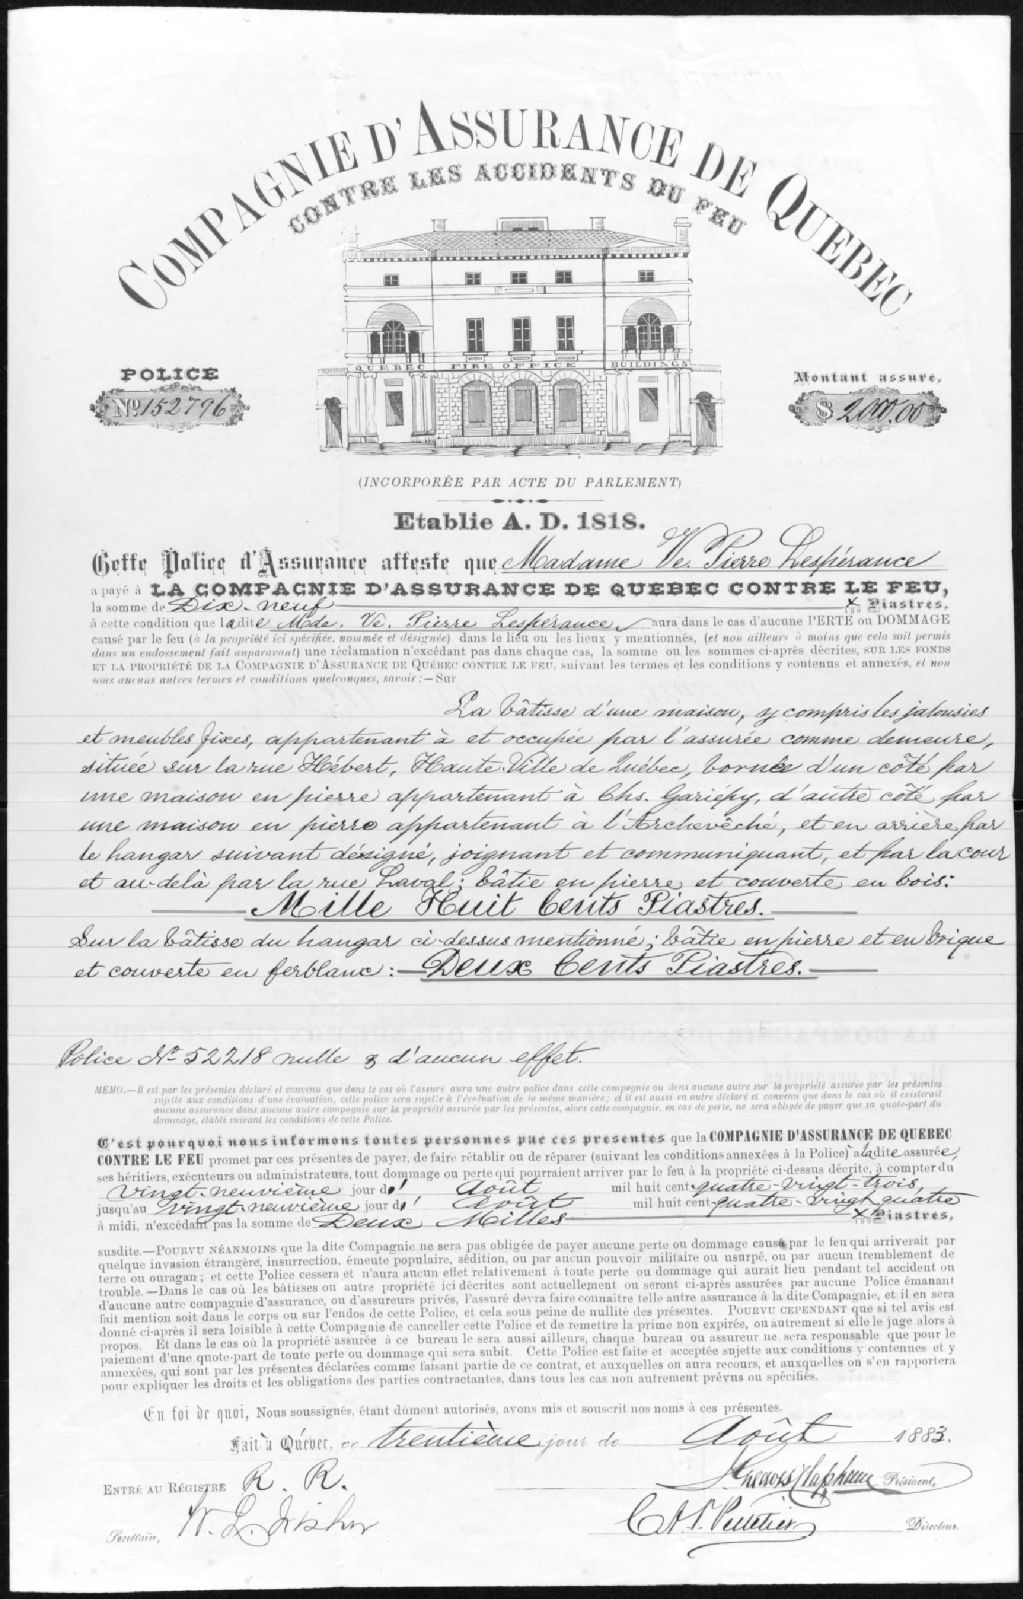 COMPAGNIE D'ASSURANCE DE QUEBEC
CONTRE LES ACCIDENTS DU FEU
QUEBEC FIRE OFFICE BUILDINGS
POLICE
No. 152796
Montant assuré,
$ 2000.00
(INCORPORÉE PAR ACTE DU PARLEMENT)
Etablie A. D. 1818.
Cette Police d'Assurance atteste que Madame Ve. Pierre Lespérance
a payé à LA COMPAGNIE D'ASSURANCE DE QUEBEC CONTRE LE FEU,
la somme de Dix-neuf x/100 Piastres,
à cette condition que ladite Mde. Ve. Pierre Lespérance aura dans le cas d'aucune PERTE ou DOMMAGE
causé par le feu (à la propriété ici spécifiée, nommée et désignée) dans le lieu ou les lieux y mentionnés, (et non ailleurs à moins que cela soit permis
dans un endossement fait auparavant) une réclamation n'excédant pas dans chaque cas, la somme ou les sommes ci-après décrites, SUR LES FONDS
ET LA PROPRIÉTÉ DE LA COMPAGNIE D'ASSURANCE DE QUÉBEC CONTRE LE FEU, suivant les termes et les conditions y contenus et annexés, et non
sous aucuns autres termes et conditions quelconques, savoir:—Sur
La bâtisse d'une maison, y compris les jalousies
et meubles fixes, appartenant à et occupée par l'assurée comme demeure,
située sur la rue Hébert, Haute-Ville de Québec, bornée d'un côté par
une maison en pierre appartenant à Chs. Gariépy, d'autre côté par
une maison en pierre appartenant à l'Archevêché, et en arrière par
le hangar suivant désigné, joignant et communiquant, et par la cour
et au-delà par la rue Laval; bâtie en pierre et couverte en bois:
Mille Huit Cents Piastres.
Sur la bâtisse du hangar ci-dessus mentionné; bâtie en pierre et en brique
et couverte en ferblanc:—Deux Cents Piastres.
Police No 52218 nulle & d'aucun effet.
MEMO.—Il est par les présentes déclaré et convenu que dans le cas où l'assuré aura une autre police dans cette compagnie ou dans aucune autre sur la propriété assurée par les présentes
sujette aux conditions d'une évaluation, cette police sera sujette à l'évaluation de la même manière; et il est aussi en outre déclaré et convenu que dans le cas où il existerait
aucune assurance dans aucune autre compagnie sur la propriété assurée par les présentes, alors cette compagnie, en cas de perte, ne sera obligée de payer que sa quote-part du
dommage, établi suivant les conditions de cette Police.
C'est pourquoi nous informons toutes personnes par ces presentes que la COMPAGNIE D'ASSURANCE DE QUEBEC
CONTRE LE FEU promet par ces présentes de payer, de faire rétablir ou de réparer (suivant les conditions annexées à la Police) à ladite assurée,
ses héritiers, exécuteurs ou administrateurs, tout dommage ou perte qui pourraient arriver par le feu à la propriété ci-dessus décrite, à compter du
vingt-neuvième jour d' Août mil huit cent quatre-vingt-trois,
jusqu'au vingt-neuvième jour d' Août mil huit cent quatre-vingt quatre
à midi, n'excédant pas la somme de Deux Milles x/100 Piastres,
susdite.—POURVU NÉANMOINS que la dite Compagnie ne sera pas obligée de payer aucune perte ou dommage causé par le feu qui arriverait par
quelque invasion étrangère, insurrection, émeute populaire, sédition, ou par aucun pouvoir militaire ou usurpé, ou par aucun tremblement de
terre ou ouragan; et cette Police cessera et n'aura aucun effet relativement à toute perte ou dommage qui aurait lieu pendant tel accident ou
trouble.—Dans le cas où les bâtisses ou autre propriété ici décrites sont actuellement ou seront ci-après assurées par aucune Police émanant
d'aucune autre compagnie d'assurance, ou d'assureurs privés, l'assuré devra faire connaître telle autre assurance à la dite Compagnie, et il en sera
fait mention soit dans le corps ou sur l'endos de cette Police, et cela sous peine de nullité des présentes. POURVU CEPENDANT que si tel avis est
donné ci-après il sera loisible à cette Compagnie de canceller cette Police et de remettre la prime non expirée, ou autrement si elle le juge alors à
propos. Et dans le cas où la propriété assurée à ce bureau le sera aussi ailleurs, chaque bureau ou assureur ne sera responsable que pour le
paiement d'une quote-part de toute perte ou dommage qui sera subit. Cette Police est faite et acceptée sujette aux conditions y contenues et y
annexées, qui sont par les présentes déclarées comme faisant partie de ce contrat, et auxquelles on aura recours, et auxquelles on s'en rapportera
pour expliquer les droits et les obligations des parties contractantes, dans tous les cas non autrement prévus ou spécifiés.
En foi de quoi, Nous soussignés, étant dûment autorisés, avons mis et souscrit nos noms à ces présentes.
Fait à Québec, ce trentième jour de Août 1883.
ENTRÉ AU RÉGISTRE R. R.
Président,
Secrétaire, W. L. Fisher
C A P Pelletier Directeur.